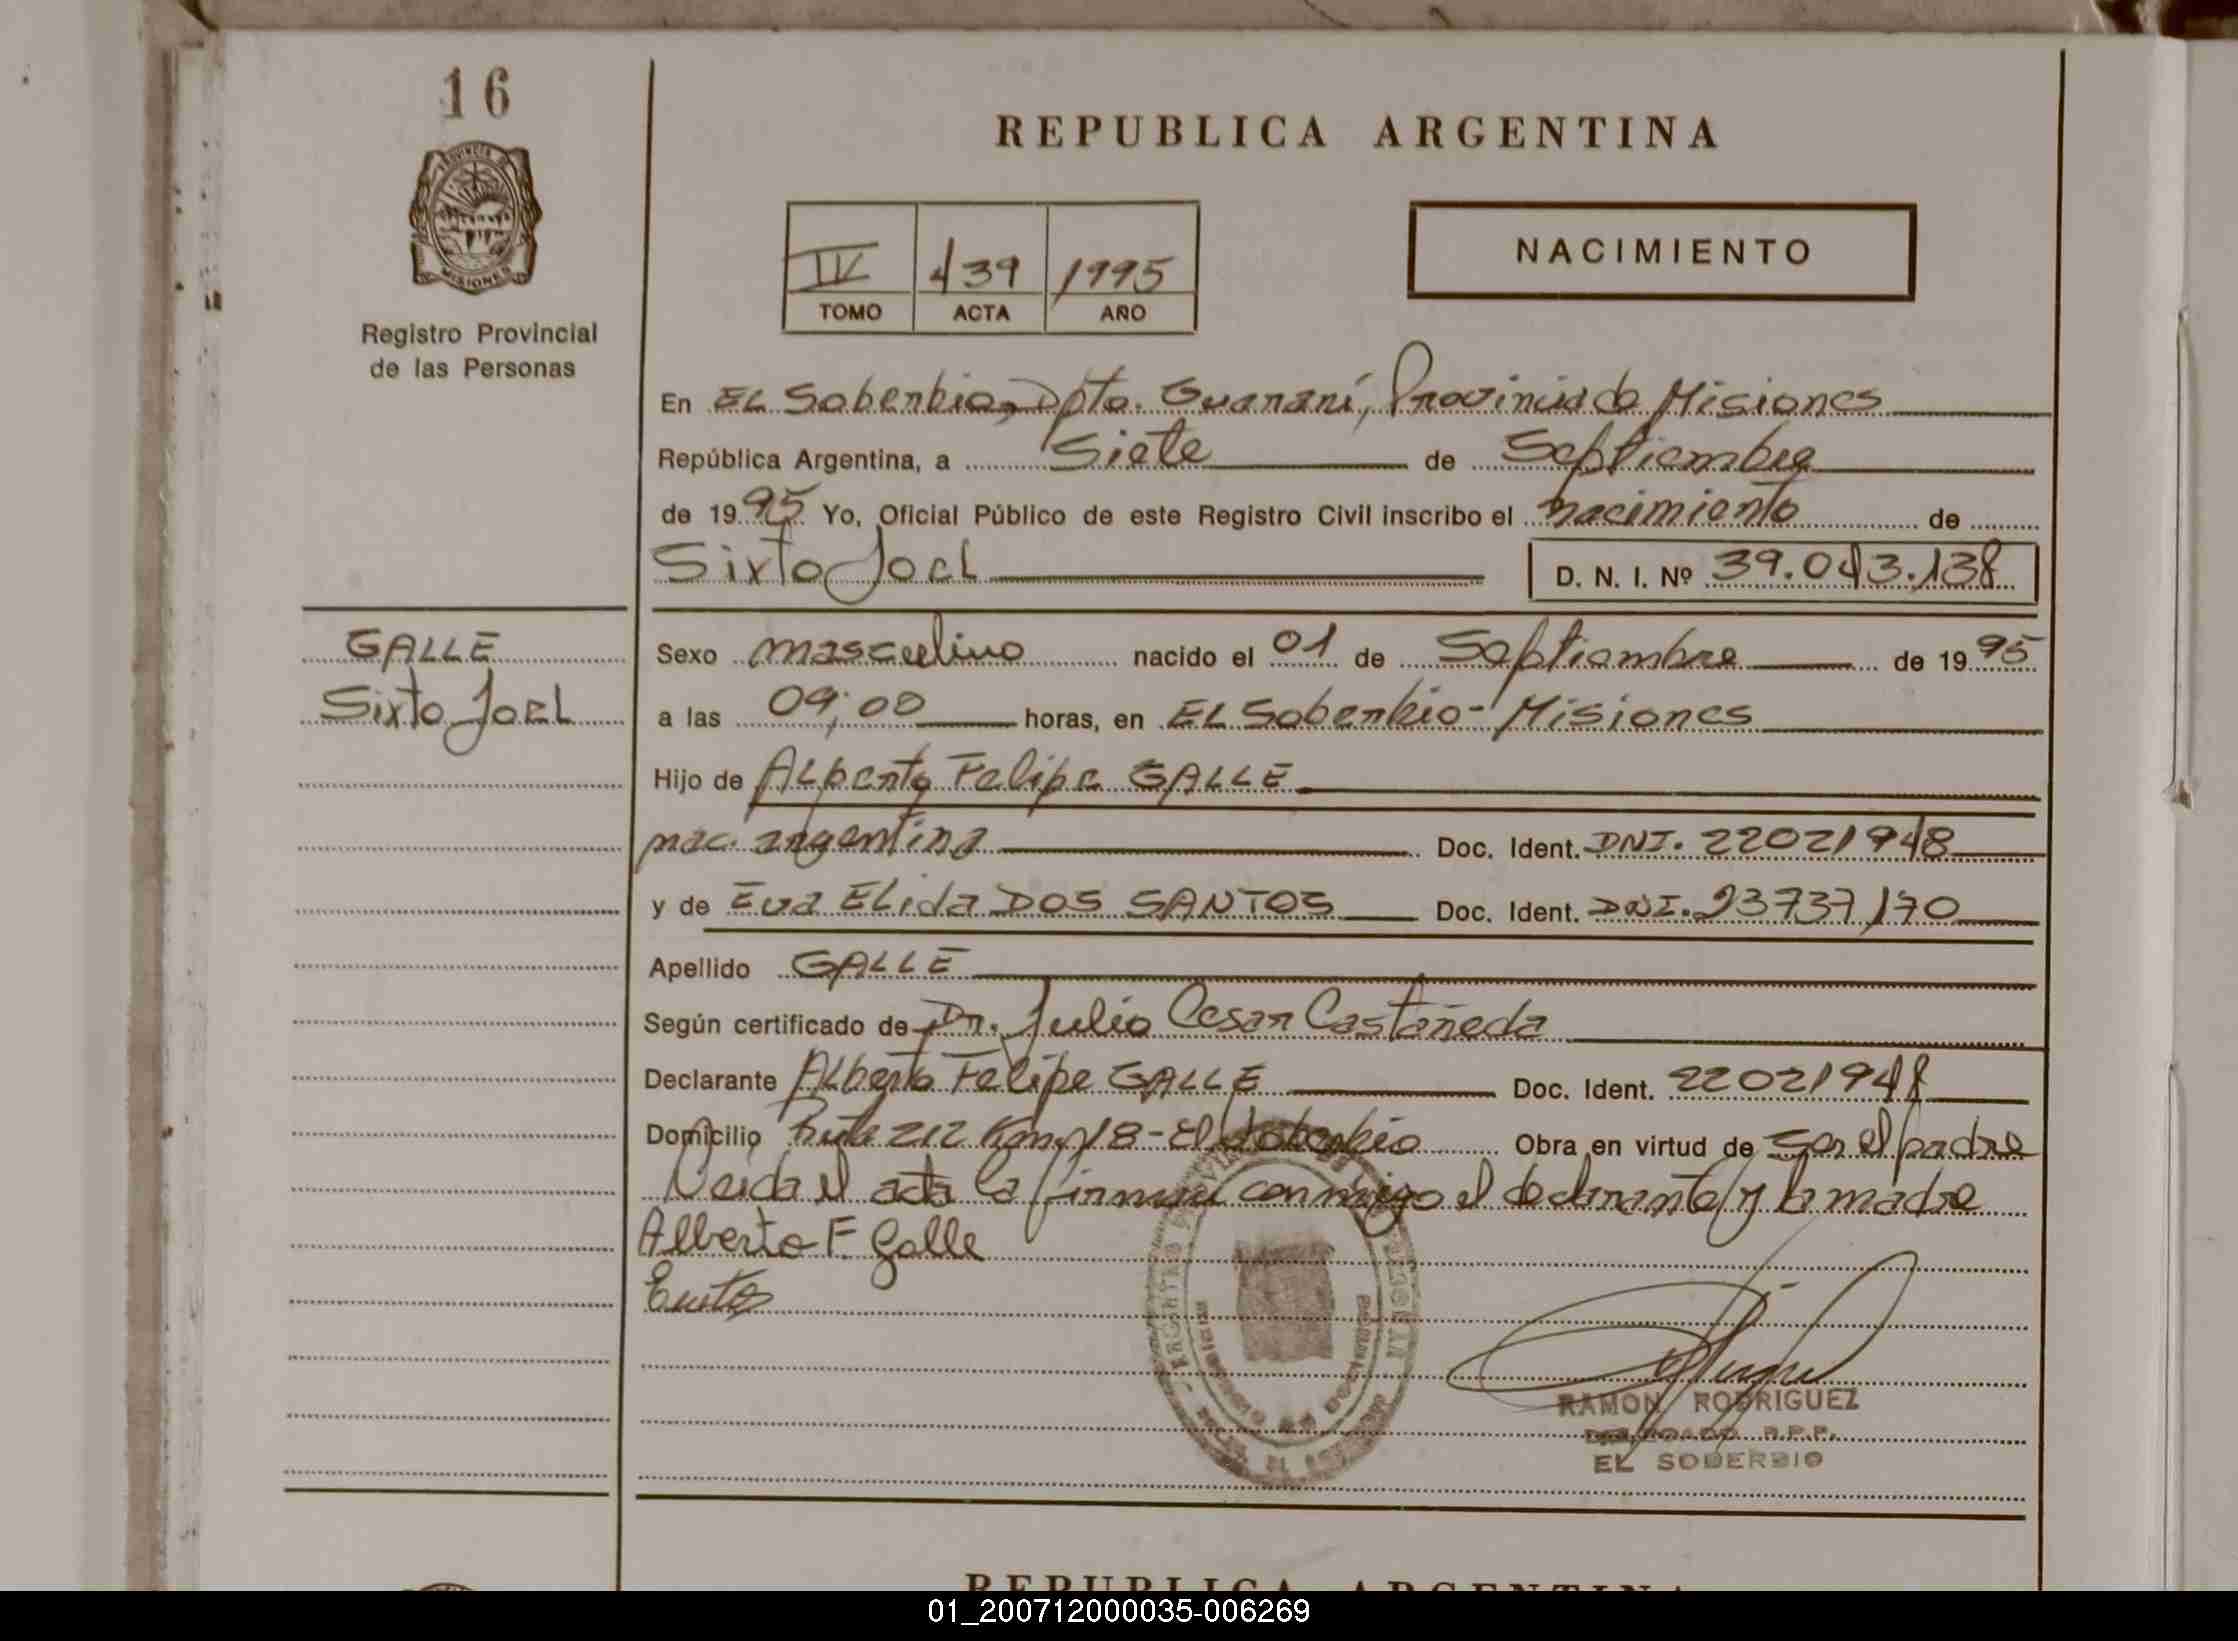 16
PROVINCIA DE
MISIONES
Registro Provincial
de las Personas
REPUBLICA ARGENTINA
IV 439 1995
TOMO ACTA AÑO
NACIMIENTO
En EL Soberbio, Dpto. Guaraní, Provincia de Misiones
República Argentina, a Siete de Septiembre
de 1995 Yo, Oficial Público de este Registro Civil inscribo el nacimiento de
Sixto Joel D. N. I. Nº 39.043.138
GALLE
Sixto Joel
Sexo masculino nacido el 01 de Septiembre de 1995
a las 09:00 horas, en EL Soberbio - Misiones
Hijo de Alberto Felipe GALLE
nac. argentina Doc. Ident. DNI. 22021948
y de Eva Elida DOS SANTOS Doc. Ident. DNI. 23737170
Apellido GALLE
Según certificado de Dr. Julio Cesar Castañeda
Declarante Alberto Felipe GALLE Doc. Ident. 22021948
Domicilio Ruta 212 Km. 18 - El Soberbio Obra en virtud de ser el padre
Leida el acta la firman conmigo el declarante y la madre
Alberto F Galle
RAMON RODRIGUEZ
DELEGADO R.P.P.
EL SOBERBIO
REPUBLICA ARGENTINA
01_200712000035-006269